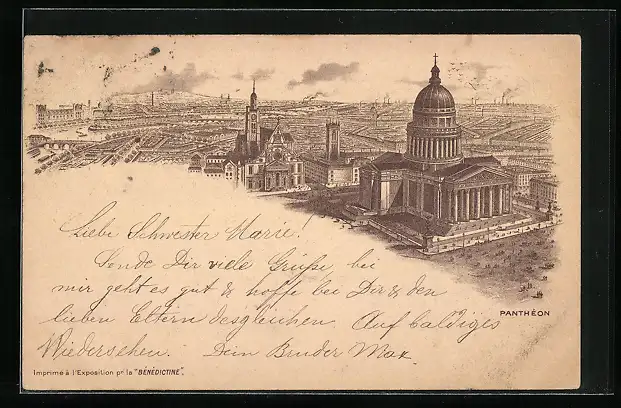 PANTHÉON
Liebe Schwester Marie!
Sende Dir viele Grüße, bei
mir geht es gut & hoffe bei Dir & den
lieben Eltern desgleichen. Auf baldiges
Wiedersehen. Dein Bruder Max.
Imprimé à l'Exposition pr la "BÉNÉDICTINE".